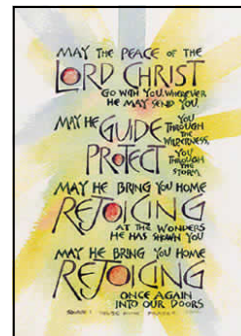 MAY THE PEACE OF THE
LORD CHRIST
GO WITH YOU, WHEREVER
HE MAY SEND YOU,
MAY HE GUIDE YOU
THROUGH
THE
WILDERNESS,
PROTECT YOU
THROUGH
THE
STORM.
MAY HE BRING YOU HOME
REJOICING
AT THE WONDERS
HE HAS SHOWN YOU
MAY HE BRING YOU HOME
REJOICING
ONCE AGAIN
INTO OUR DOORS